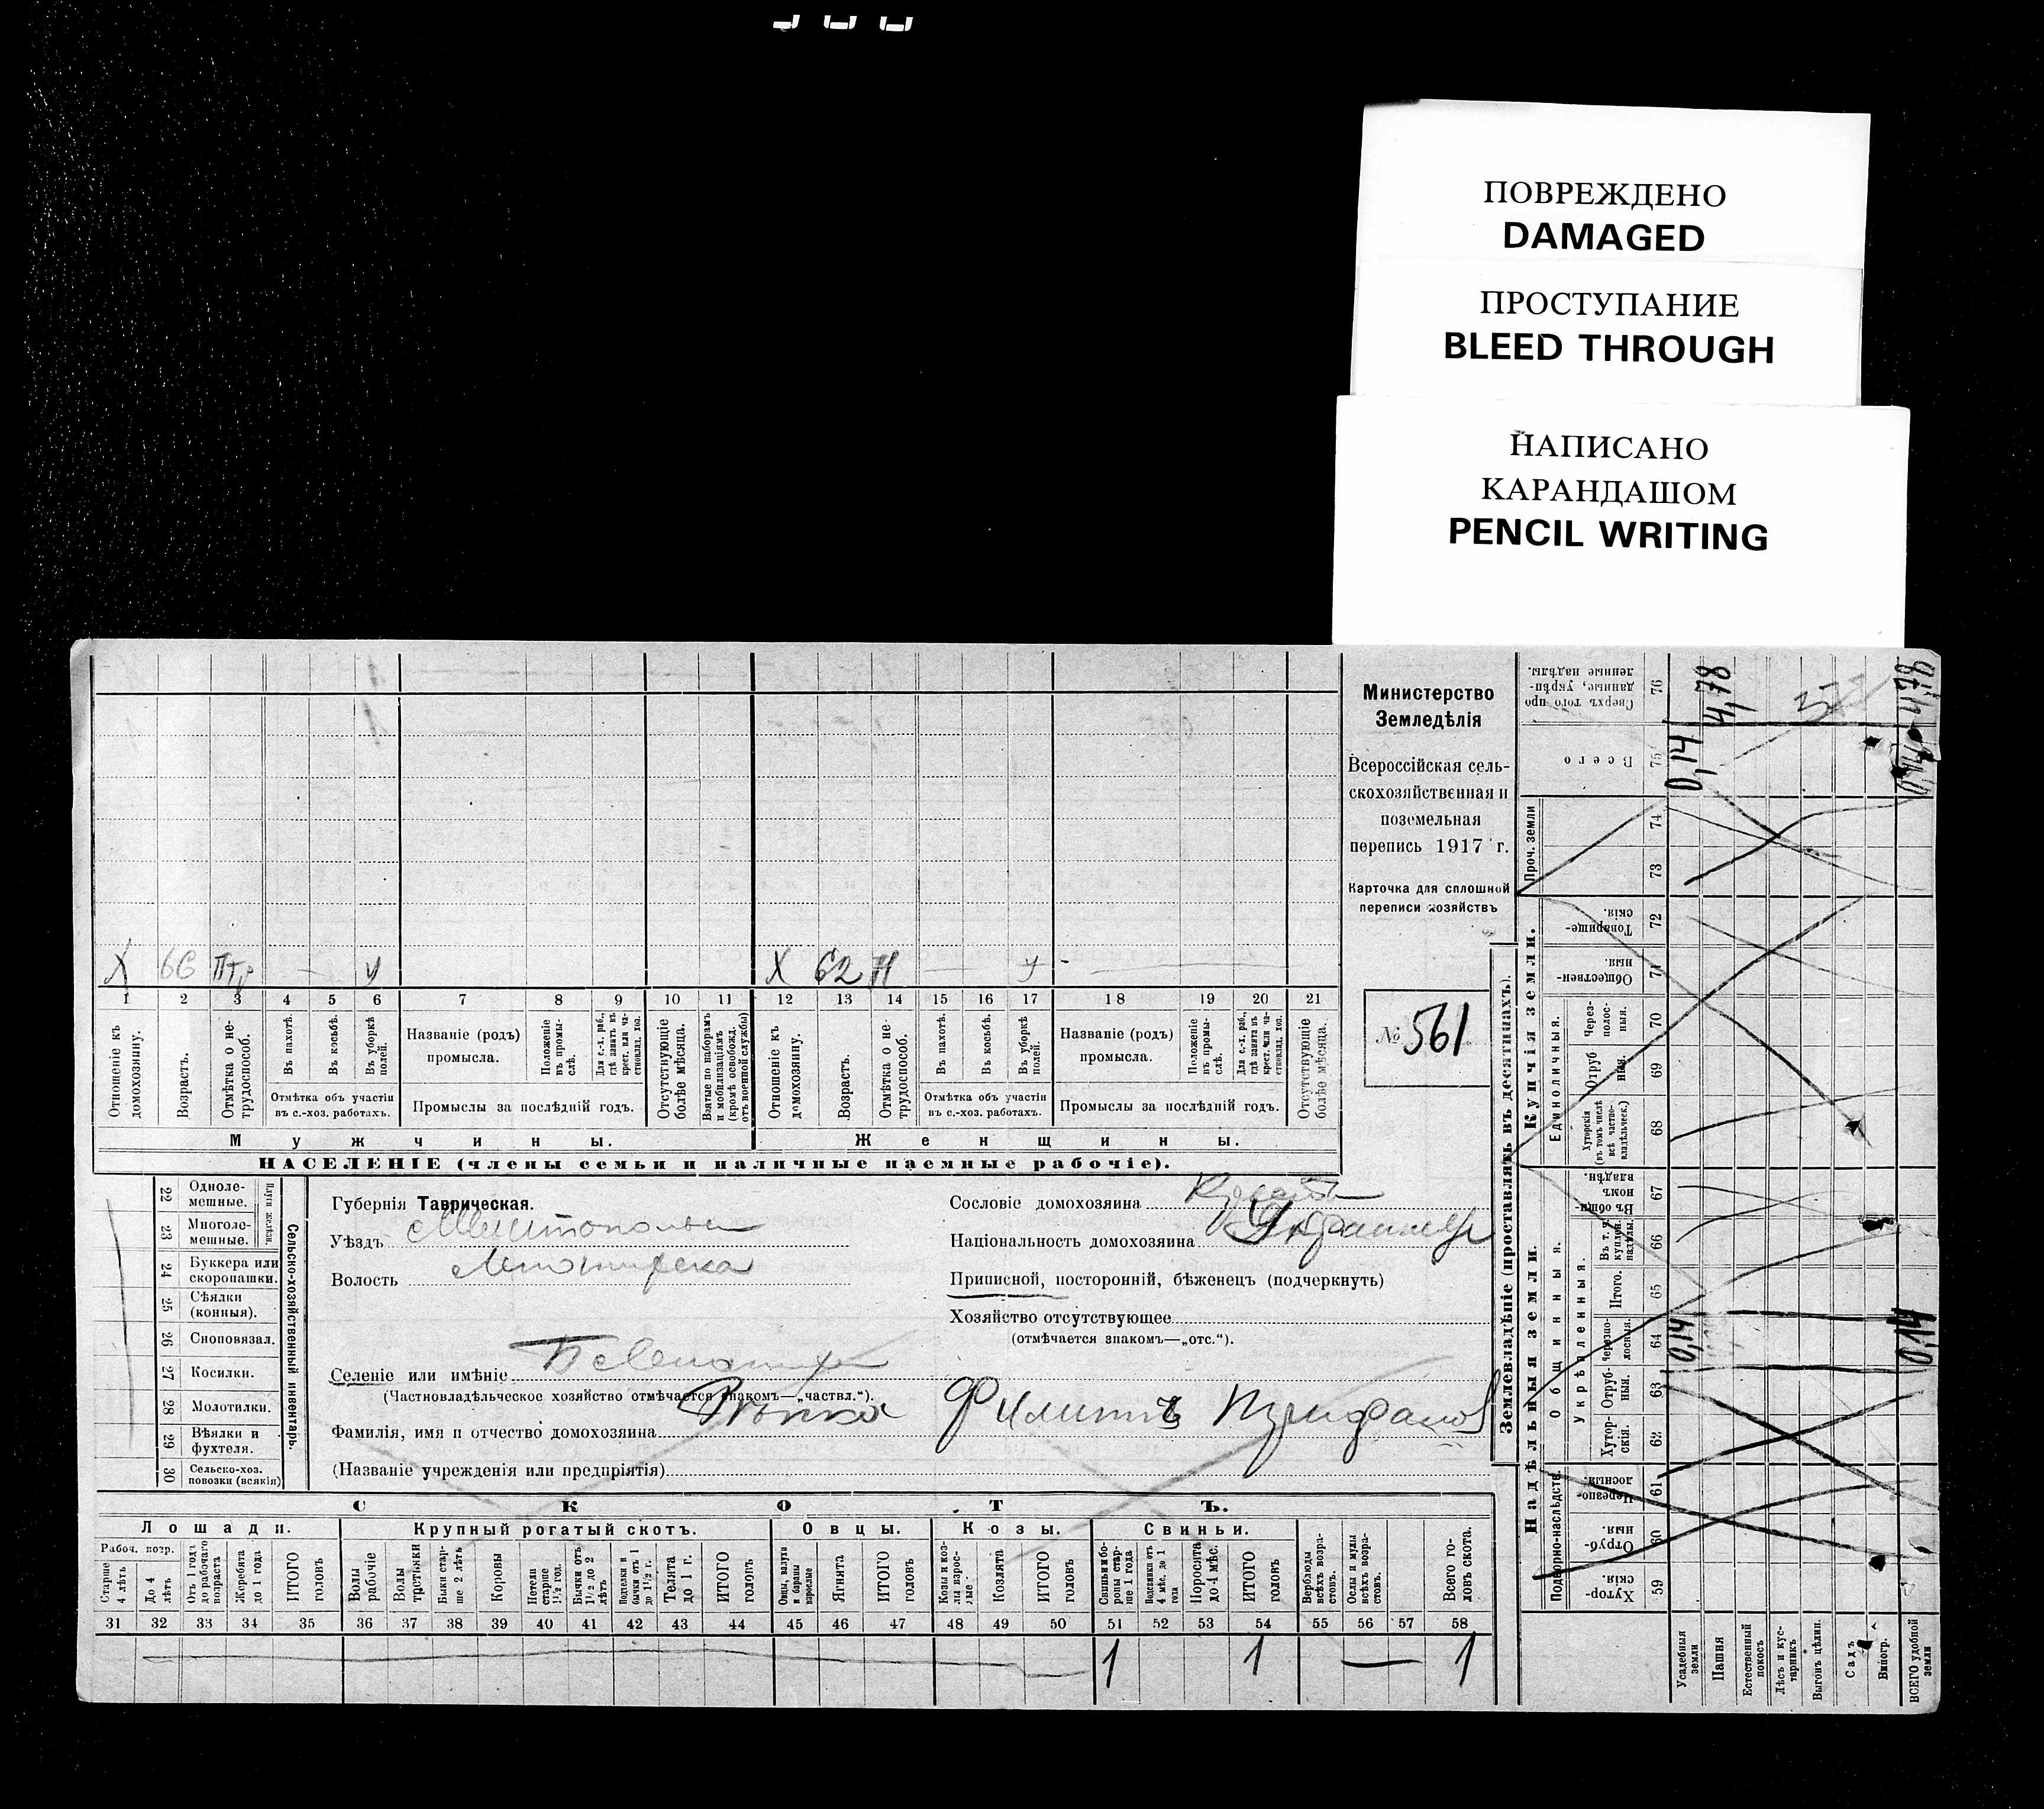 ПОВРЕЖДЕНО
DAMAGED
ПРОСТУПАНИЕ
BLEED THROUGH
НАПИСАНО
КАРАНДАШОМ
PENCIL WRITING
Министерство
Земледѣлія
Всероссійская сель-
скохозяйственная и
поземельная
перепись 1917 г.
Карточка для сплошной
переписи хозяйствъ
№ 561
Х 66 У
Х 62 Н У
1 2 3 4 5 6 7 8 9 10 11 12 13 14 15 16 17 18 19 20 21
Отношеніе къ домохозяину.
Возрастъ.
Отмѣтка о не-трудоспособ.
Въ пахотѣ.
Въ косьбѣ.
Въ уборкѣ полей.
Отмѣтка объ участіи
въ с.-хоз. работахъ.
Названіе (родъ)
промысла.
Положеніе въ промы-слѣ.
Для с.-х. раб., гдѣ занятъ въ крест. или ча-стновлад. хоз.
Промыслы за послѣдній годъ.
Отсутствующіе болѣе мѣсяца.
Взятые по наборамъ и мобилизаціямъ (кромѣ освобожд. отъ военной службы)
Отношеніе къ домохозяину.
Возрастъ.
Отмѣтка о не-трудоспособ.
Въ пахотѣ.
Въ косьбѣ.
Въ уборкѣ полей.
Отмѣтка объ участіи
въ с.-хоз. работахъ.
Названіе (родъ)
промысла.
Положеніе въ промы-слѣ.
Для с.-х. раб., гдѣ занята въ крест. или ча-стновлад. хоз.
Промыслы за послѣдній годъ.
Отсутствующіе болѣе мѣсяца.
Мужчины.
Женщины.
НАСЕЛЕНІЕ (члены семьи и наличные наемные рабочіе).
22 Одноле-мешные.
23 Многоле-мешные.
Плуги желѣзн.
24 Буккера или скоропашки.
25 Сѣялки (конныя).
26 Сноповязал.
27 Косилки.
28 Молотилки.
29 Вѣялки и фухтеля.
30 Сельско-хоз. повозки (всякія)
Сельско-хозяйственный инвентарь.
Губернія Таврическая.
Уѣздъ
Волость
Селеніе или имѣніе
(Частновладѣльческое хозяйство отмѣчается знакомъ—„частвл.“).
Фамилія, имя и отчество домохозяина Филиппъ
(Названіе учрежденія или предпріятія)
Сословіе домохозяина
Національность домохозяина Украинец
Приписной, посторонній, бѣженецъ (подчеркнуть)
Хозяйство отсутствующее
(отмѣчается знакомъ—„отс.“).
СКОТЪ.
Лошади. Крупный рогатый скотъ. Овцы. Козы. Свиньи.
Рабоч. возр.
Старше 4 лѣтъ
До 4 лѣтъ
Отъ 1 года до рабочаго возраста
Жеребята до 1 года
ИТОГО головъ
Волы рабочіе
Волы третьяки
Быки стар-ше 2 лѣтъ
Коровы
Нетели старше 1½ год.
Бычки отъ 1½ до 2 лѣтъ
Подтелки и бычки отъ 1 до 1½ г.
Телята до 1 г.
ИТОГО головъ
Овцы, валухи и бараны взрослые
Ягнята
ИТОГО головъ
Козы и коз-лы взрос-лые
Козлята
ИТОГО головъ
Свиньи и бо-ровы стар-ше 1 года
Подсвинки отъ 4 мѣс. до 1 года
Поросята до 4 мѣс.
ИТОГО головъ
Верблюды всѣхъ возра-стовъ.
Ослы и мулы всѣхъ возра-стовъ.
Всего го-ловъ скота.
31 32 33 34 35 36 37 38 39 40 41 42 43 44 45 46 47 48 49 50 51 52 53 54 55 56 57 58
1 1 — 1
Землевладѣніе (проставлять въ десятинахъ).
Надѣльныя земли.
Купчія земли.
Проч. земли
Подворно-наслѣдств.
Общинныя.
Укрѣпленныя.
Единоличныя.
Хутор-скія.
Отруб-ныя.
Черезпо-лосныя.
Хутор-скія.
Отруб-ныя.
Черезпо-лосныя.
Итого.
Въ т. ч. куплен. надѣлы.
Въ общин-номъ владѣн.
Хуторскія (въ томъ числѣ всѣ частно-владѣльческ.)
Отруб-ныя.
Через-полос-ныя.
Обществен-ныя.
Товарище-скія.
Всего
Сверхъ того про-данные, укрѣп-ленные надѣлы.
59 60 61 62 63 64 65 66 67 68 69 70 71 72 73 74 75 76
Усадебныя земли
Пашня
Естественный покосъ
Лѣсъ и кус-тарникъ
Выгонъ цѣлин.
Садъ
Виногр.
ВСЕГО удобной земли
0,14 0,14
0,14
4,78 4,78